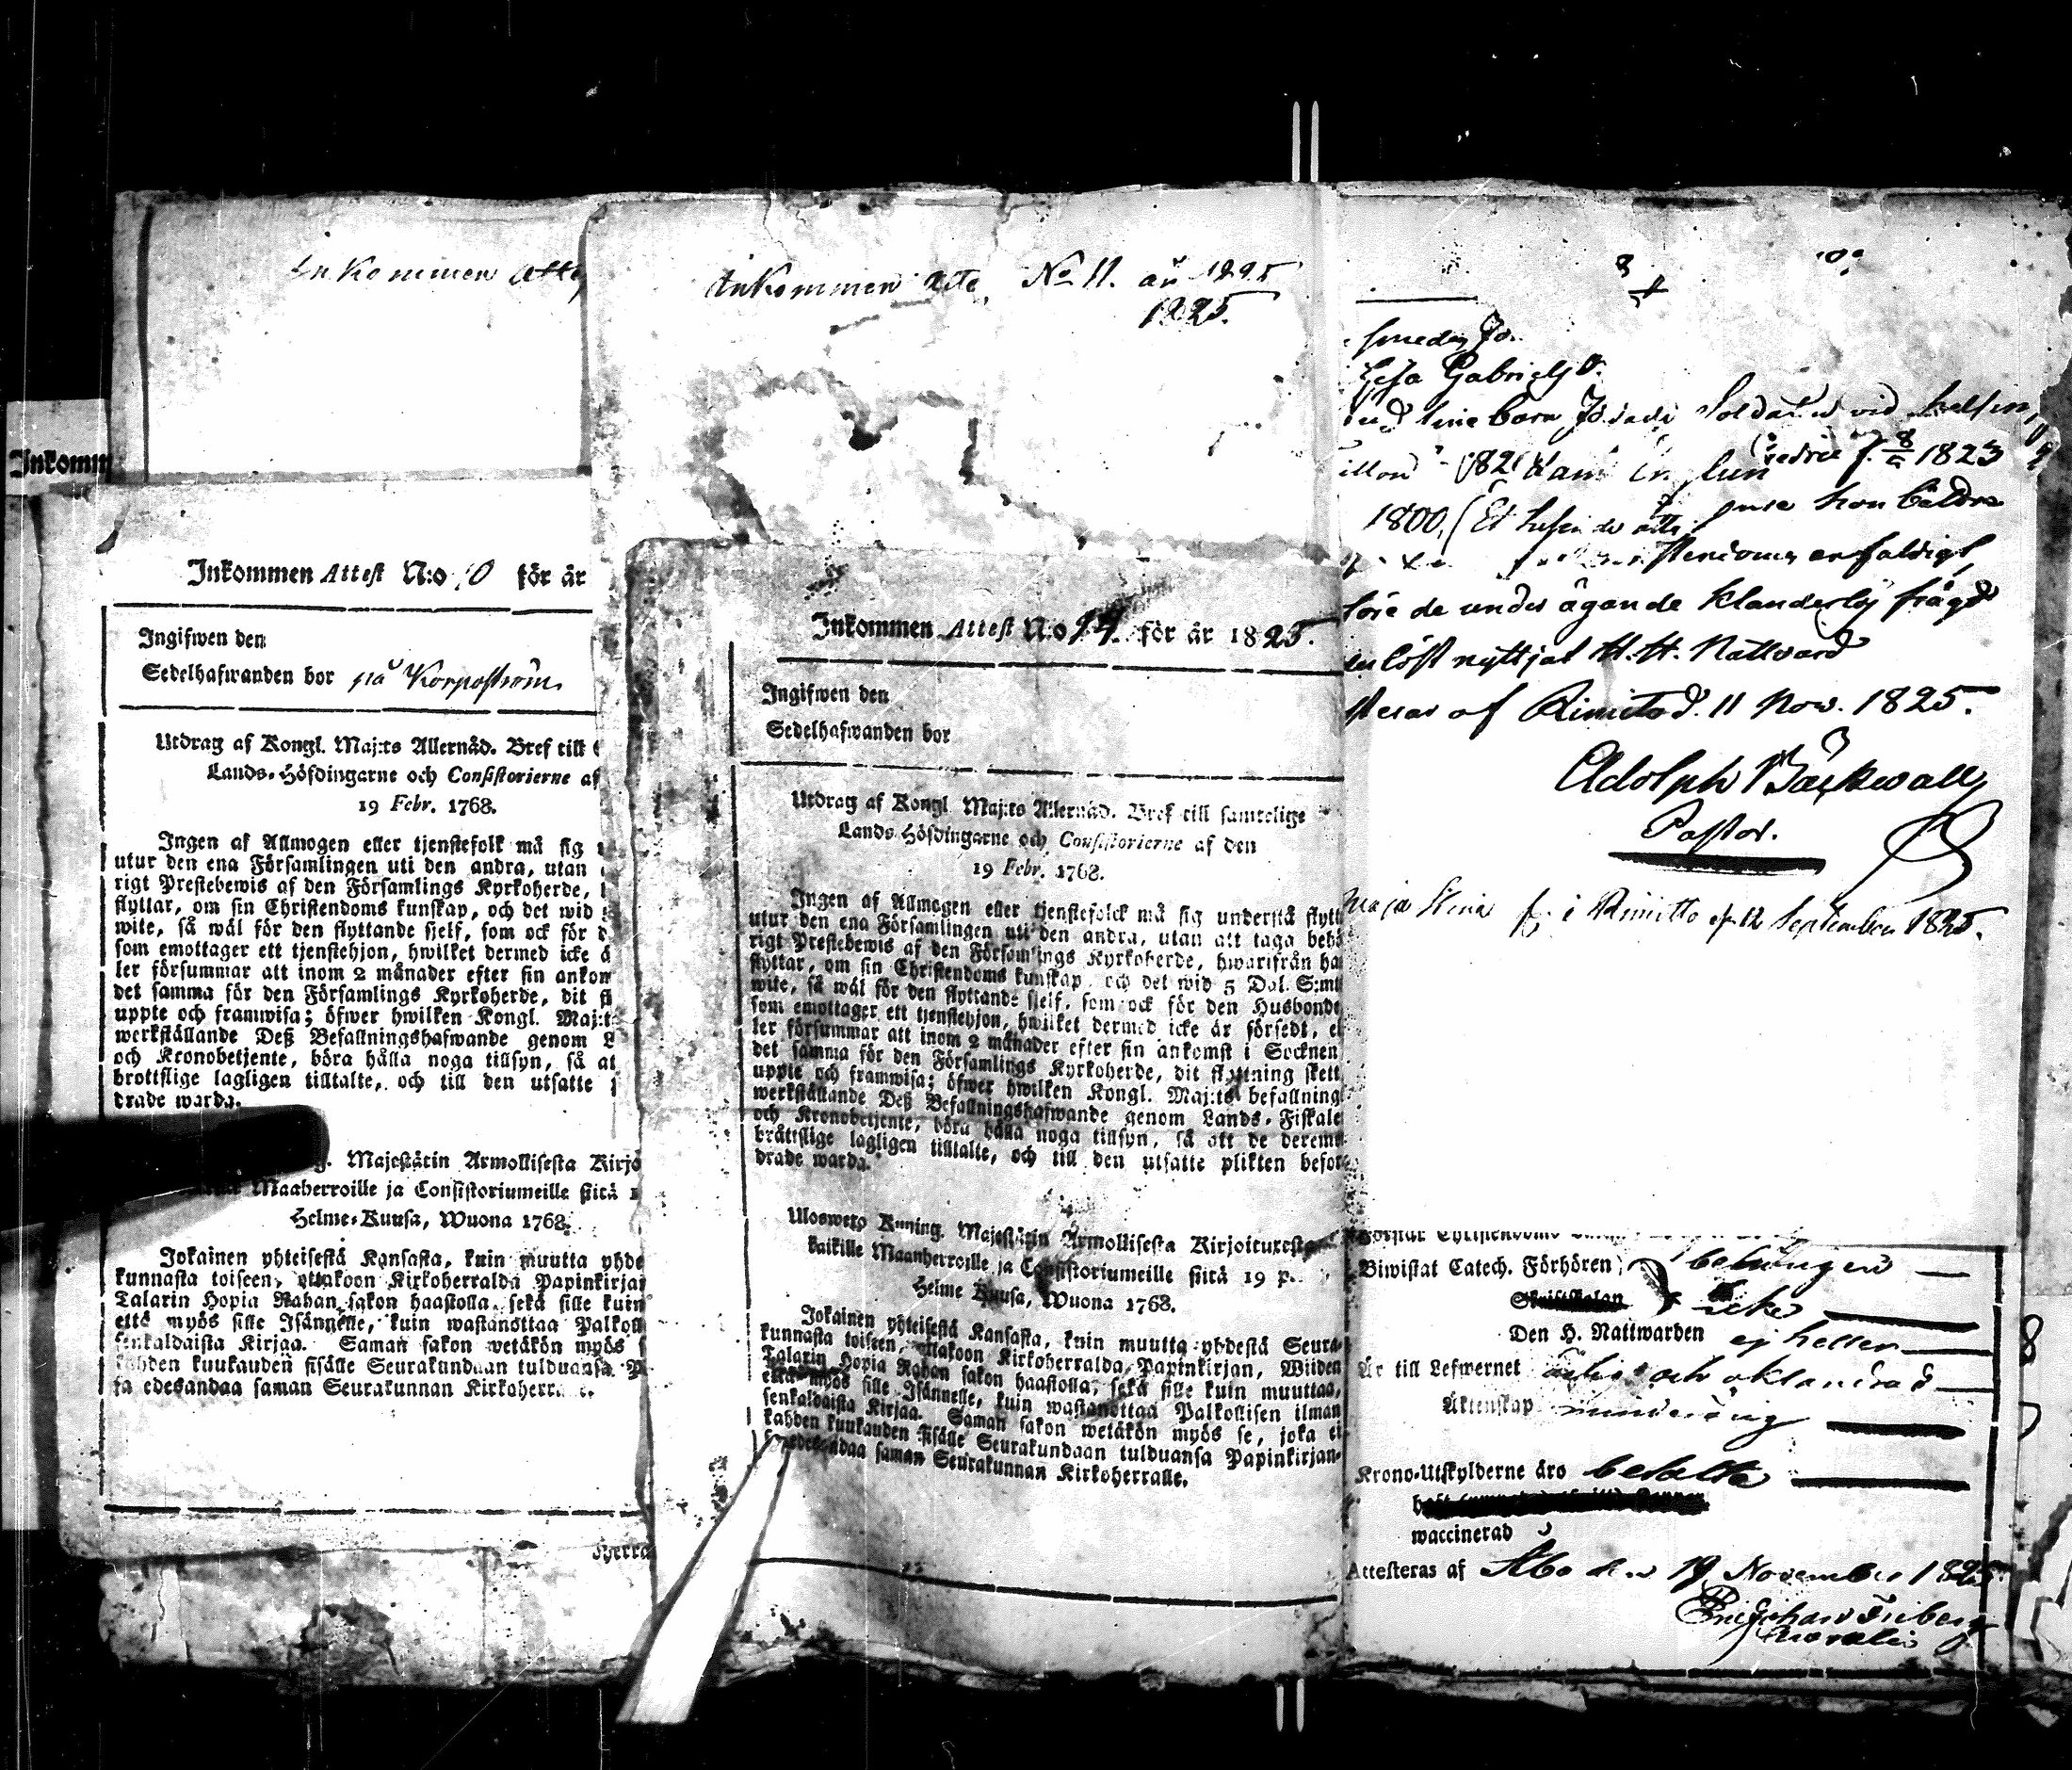 Inkommen Atte
Inkomm
Inkommen Attest N:o 10 för år
Ingifwen den
Sedelhafwanden bor på Korpoström
Utdrag af Kongl. Maj:ts Allernåd. Bref till
Lands-Höfdingarne och Consistorierne af
19 Febr. 1768.
Ingen af Allmogen eller tjenstefolk må sig
utur den ena Församlingen uti den andra, utan
rigt Prestebewis af den Församlings Kyrkoherde,
flyttar, om sin Christendoms kunskap, och det wid
wite, så wäl för den flyttande sjelf, som ock för d
som emottager ett tjenstehjon, hwilket dermed icke ä
ler försummar att inom 2 månader efter sin ankom
det samma för den Församlings Kyrkoherde, dit
uppte och framwisa; öfwer hwilken Kongl. Maj:t
werkställande Deß Befallningshafwande genom L
och Kronobetjente, böra hålla noga tillsyn, så at
brottslige lagligen tilltalte, och till den utsatte
drade warda.
g. Majestätin Armollisesta Kirjo
Maaherroille ja Consistoriumeille siitä 1
Helme-Kuusa, Wuona 1768.
Jokainen yhteisestä Kansasta, kuin muutta yhde
kunnasta toiseen, ottakoon Kirkoherralda Papinkirjan
Talarin Hopia Rahan sakon haastolla, sekä sille kuin
että myös sille Isännelle, kuin wastanottaa Palkoll
senkaldaista Kirjaa. Saman sakon wetäkön myös s
kahden kuukauden sisälle Seurakundaan tulduansa P
sa edesandaa saman Seurakunnan Kirkoherralle.
Herra
Inkommen Atte. No 11. år 1825
1825.
Inkommen Attest N:o 14. för år 1825.
Ingifwen den
Sedelhafwanden bor
Utdrag af Kongl. Maj:ts Allernåd. Bref till samtelige
Lands-Höfdingarne och Consistorierne af den
19 Febr. 1768.
Ingen af Allmogen eller tjenstefolck må sig understå flytt
utur den ena Församlingen uti den andra, utan att taga behö
rigt Prestebewis af den Församlings Kyrkoherde, hwarifrån ha
flyttar, om sin Christendoms kunskap, och det wid 5 Dal. S:mt
wite, så wäl för den flyttande sjelf, som ock för den Husbonde
som emottager ett tjenstehjon, hwilket dermed icke är försedt, el
ler försummar att inom 2 månader efter sin ankomst i Socknen
det samma för den Församlings Kyrkoherde, dit flyttning skett
uppte och framwisa; öfwer hwilken Kongl. Maj:ts befallning
werkställande Deß Befallningshafwande genom Lands-Fiskale
och Kronobetjente, böra hålla noga tillsyn, så att de deremo
bråttslige lagligen tilltalte, och till den utsatte plikten befor
drade warda.
Ulosweto Kuning. Majestätin Armollisesta Kirjoituxesta
kaikille Maanherroille ja Consistoriumeille siitä 19 p.
Helme Kuusa, Wuona 1768.
Jokainen yhteisestä Kansasta, kuin muutta yhdestä Seura-
kunnasta toiseen, ottakoon Kirkoherralda Papinkirjan, Wiiden
Talarin Hopia Rahan sakon haastolla, sekä sille kuin muuttaa,
että myös sille Isännelle, kuin wastanottaa Palkollisen ilman
senkaldaista Kirjaa. Saman sakon wetäkön myös se, joka ei
kahden kuukauden sisälle Seurakundaan tulduansa Papinkirjan-
sa edesandaa saman Seurakunnan Kirkoherralle.
Smeden Jo
Lisa Gabrielsd.
sine barn Soldaten vid
1823
1800
enfaldigt
de under ägande klanderlös frägd
nyttjat H. H. Nattvard
af Rimito d. 11 Nov. 1825.
Adolph Bäckwall
Pastor.
Maja Stina f. i Rimitto d. 12 September 1825.
Biwistat Catech. Förhören behörigen
icke
Den H. Nattwarden ej heller
Är till Lefwernet och oklandrad
Äktenskap minderårig
Krono-Utskylderne äro betalta
waccinerad
Attesteras af Åbo den 19 November 1825